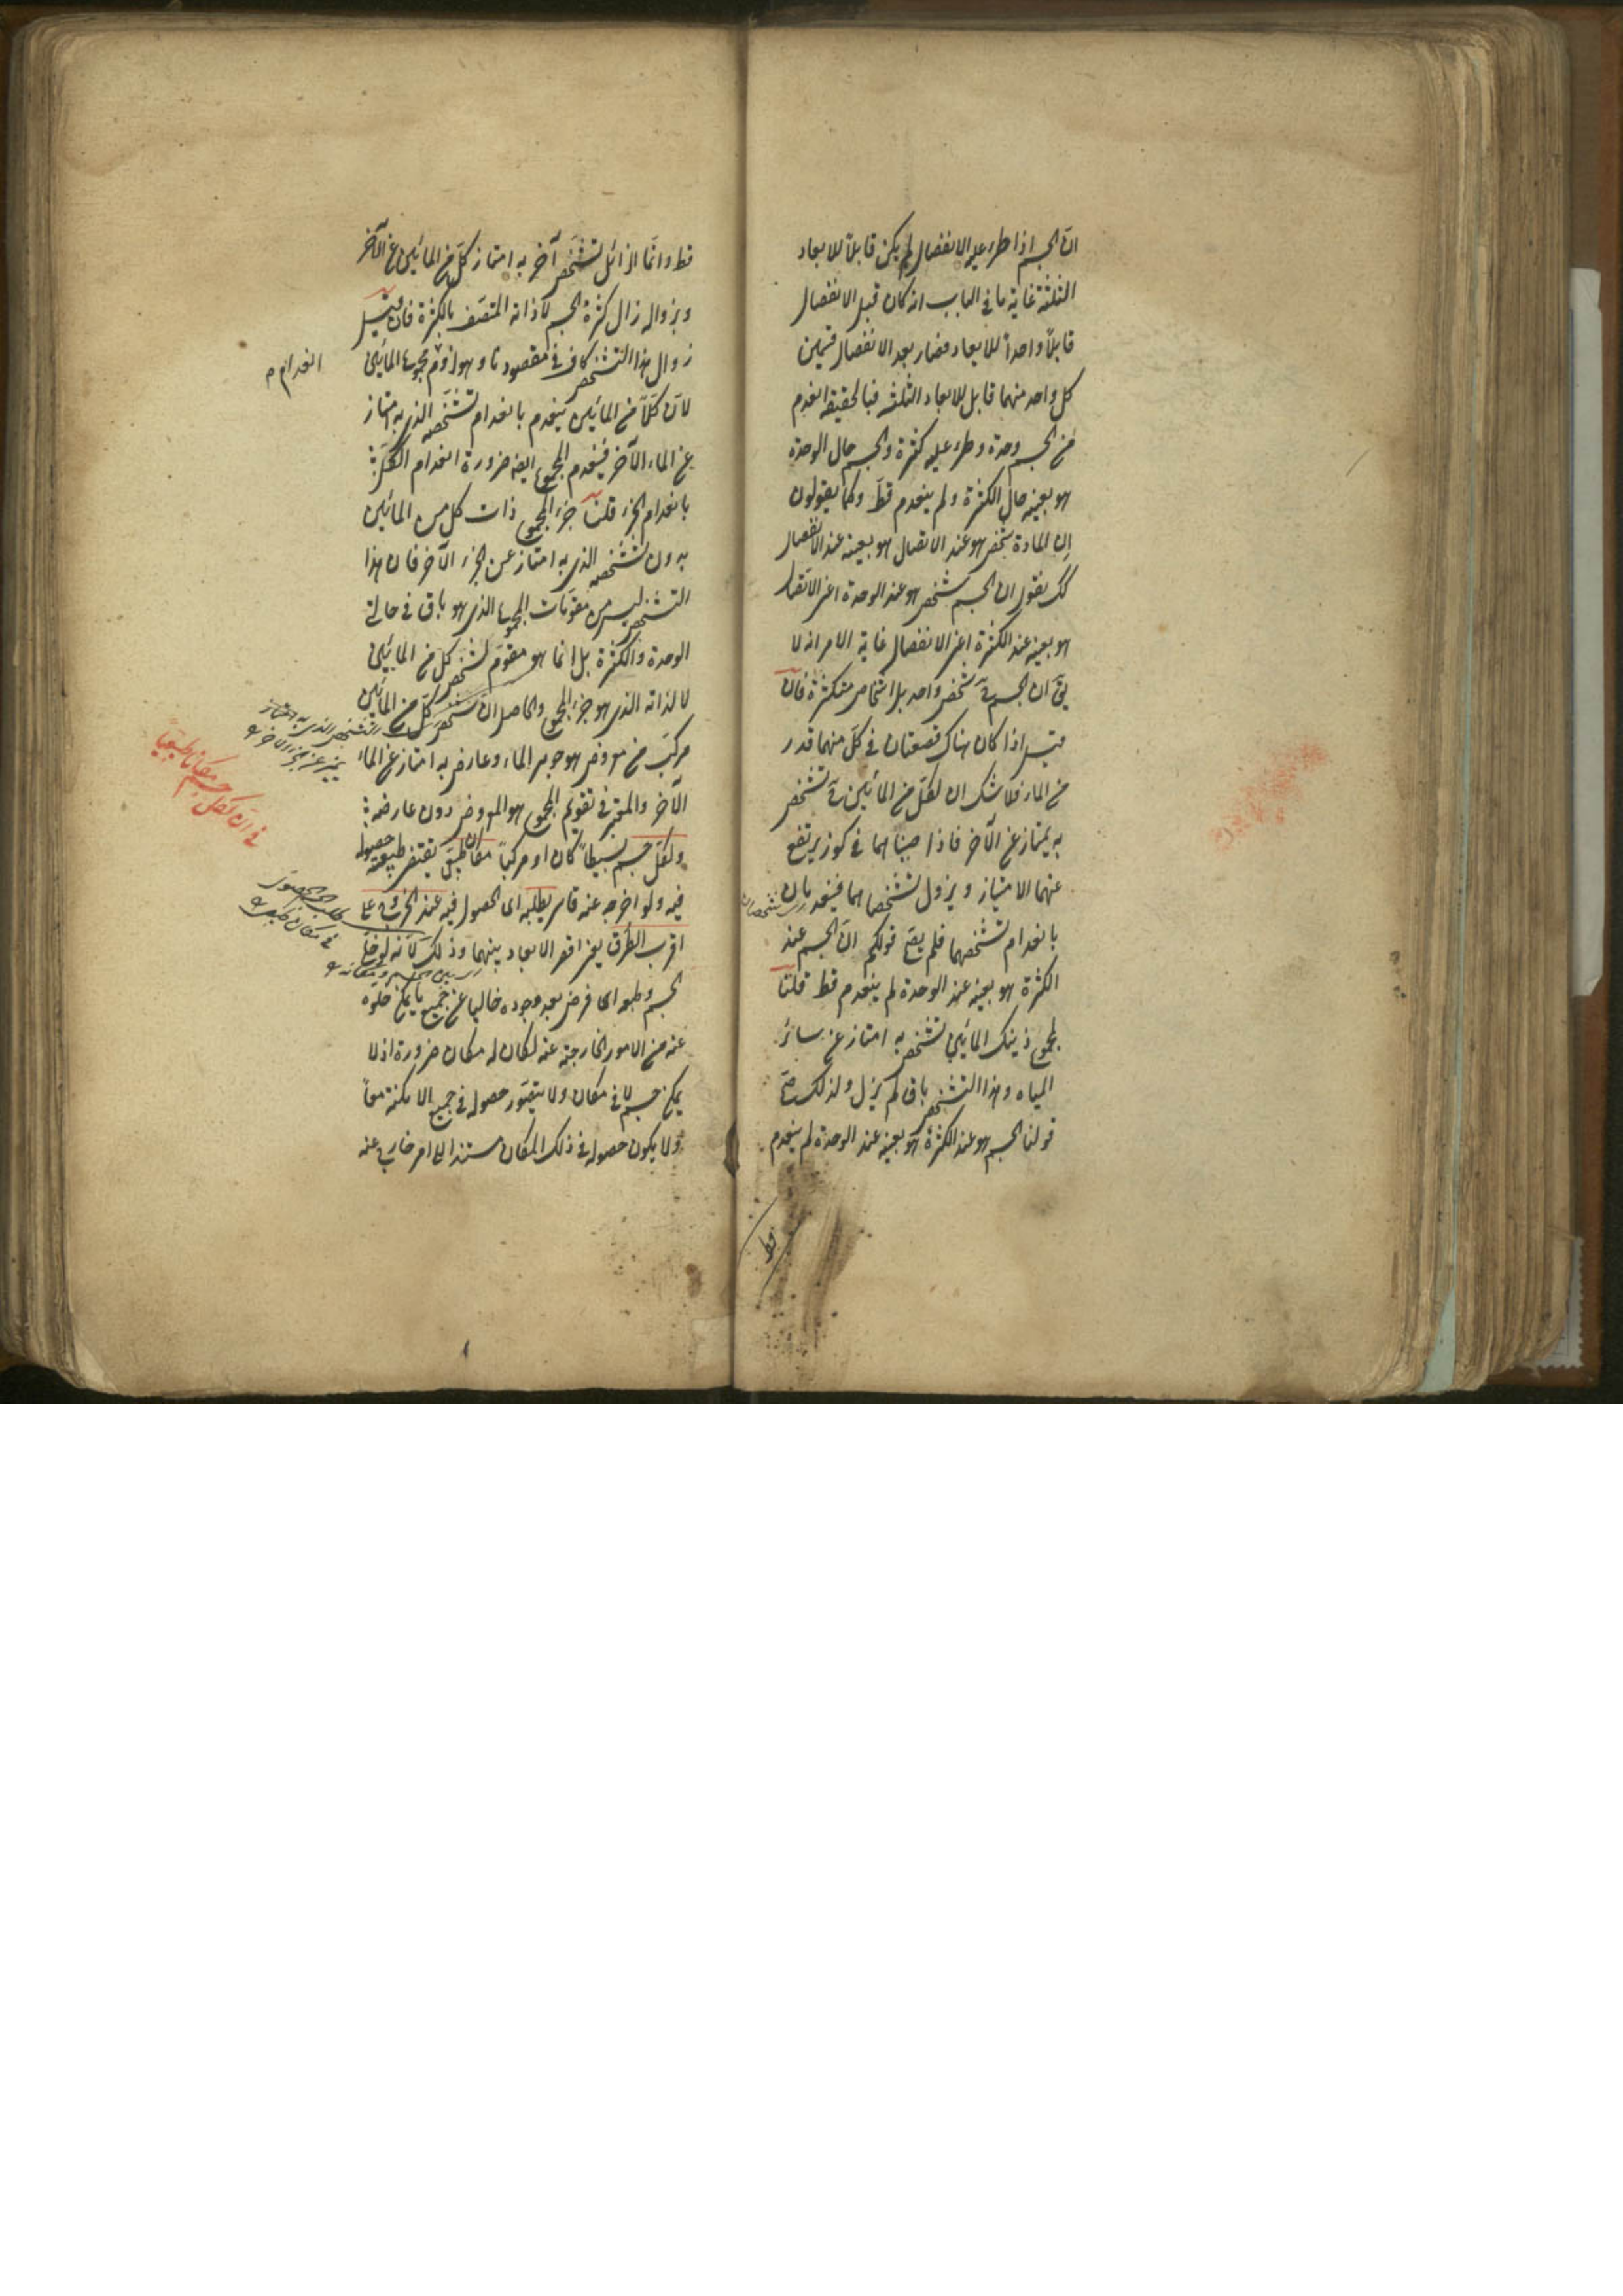 انّ الجسم اذا طرء عليه الانفصال لم يكن قابلاً للابعاد
الثلثة غاية ما فى الباب انه كان قبل الانفصال
قابلاً واحداً للابعاد فصار بعد الانفصال قسمين
كل واحد منهما قابل للابعاد الثلثة فبالحقيقة انعدم
من الجسم وحدة وطرء عليه كثرة والجسم حال الوحدة
هو بعينه حال الكثرة ولم ينعدم قطّ وكما يقولون
ان المادة شخص هو عند الاتصال هو بعينه عند الانفصال
كك نقول ان الجسم شخص هو عند الوحدة اعنى الاتصال
هو بعينه عند الكثرة اعنى الانفصال غاية الامر انه لا
يق ان الجسم ح شخص واحد بل اشخاص متكثرة فان
قيل اذا كان هناك قصعتان فى كلّ منهما قدر
من الماء فلا شك ان لكلّ من المائين ح تشخص
به يمتاز عن الآخر فاذا صببناهما فى كوز يرتفع
عنهما الامتياز ويزول تشخصاهما فينعدمان
بانعدام تشخصهما فلم يصحّ قولكم انّ الجسم عند
الكثرة هو بعينه عند الوحدة لم ينعدم قط قلنا
لمجموع ذينك المائين تشخص به امتاز عن سائر
المياه وهذا التشخص باق لم يزل ولذلك صحّ
قولنا الجسم هو عند الكثرة هو بعينه عند الوحدة لم ينعدم
قط
قط وانّما الزائل تشخّص آخر به امتاز كلّ من المائين عن الآخر
وبزواله زال كثرة الجسم لا ذاته المتصف بالكثرة فان قيل
زوال هذا التشخص كاف فى مقصودنا وهو لزوم مجموع المائين
انعدام م
لانّ كلّاً من المائين ينعدم بانعدام تشخّصه الذى به يمتاز
عن الماء الآخر فينعدم المجموع ايضه ضرورة انعدام الكلّ
بانعدام الجزء قلنا جزء المجموع ذات كل من المائين
بدون تشخصه الذى به امتاز عن الجزء الآخر فان هذا
التشخص ليس من مقوّمات المجموع الذى هو باق فى حالتى
الوحدة والكثرة بل انما هو مقوّم لشخص كل من المائين
لا لذاته الذى هو جزء المجموع والحاصل انّ شخص كلّ من المائين
مركّب من معروض هو جوهر الماء وعارض به امتاز عن الماء
الآخر والمعتبر فى تقويم المجموع هو المعروض دون عارضه
فى انّ لكلّ جسم مكانا طبيعيّا
ولكلّ جسم بسيطاً كان او مركّباً مكان طبيعىّ يقتضى طبيعته حصوله
فيه ولو اخرجه عنه قاسر يطلبه اى الحصول فيه عند الخروج على
اقرب الطرق يعنى اقصر الابعاد بينهما وذلك لانّه لو خلّى
الجسم وطبعه اى فرض بعد وجوده خاليا عن جميع ما يمكن خلوّه
عنه من الامور الخارجة عنه لكان له مكان ضرورة اذ لا
يمكن جسم لا فى مكان ولا يتصوّر حصوله فى جميع الامكنة معاً
ولا يكون حصوله فى ذلك المكان مستندا الى امر خارج عنه